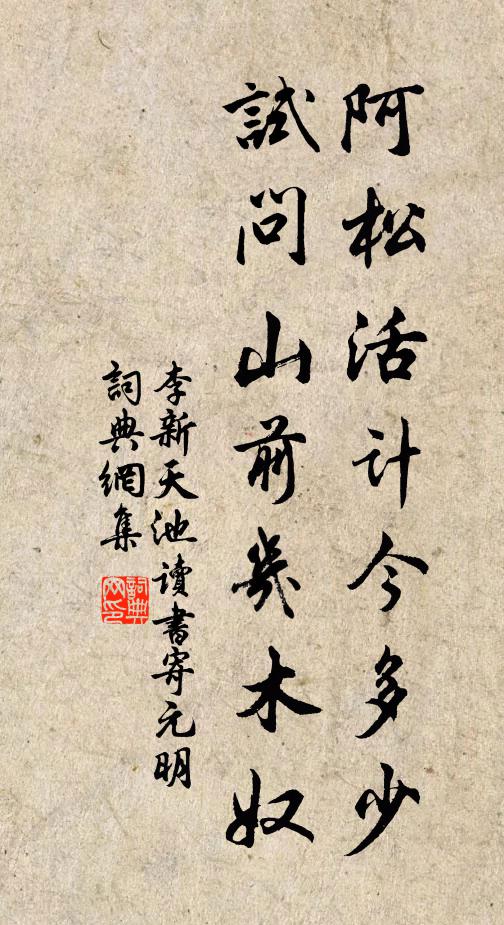 阿松活計今多少
試問山前幾木奴
李新天池讀書寄元明
詞典網集
詞典網印